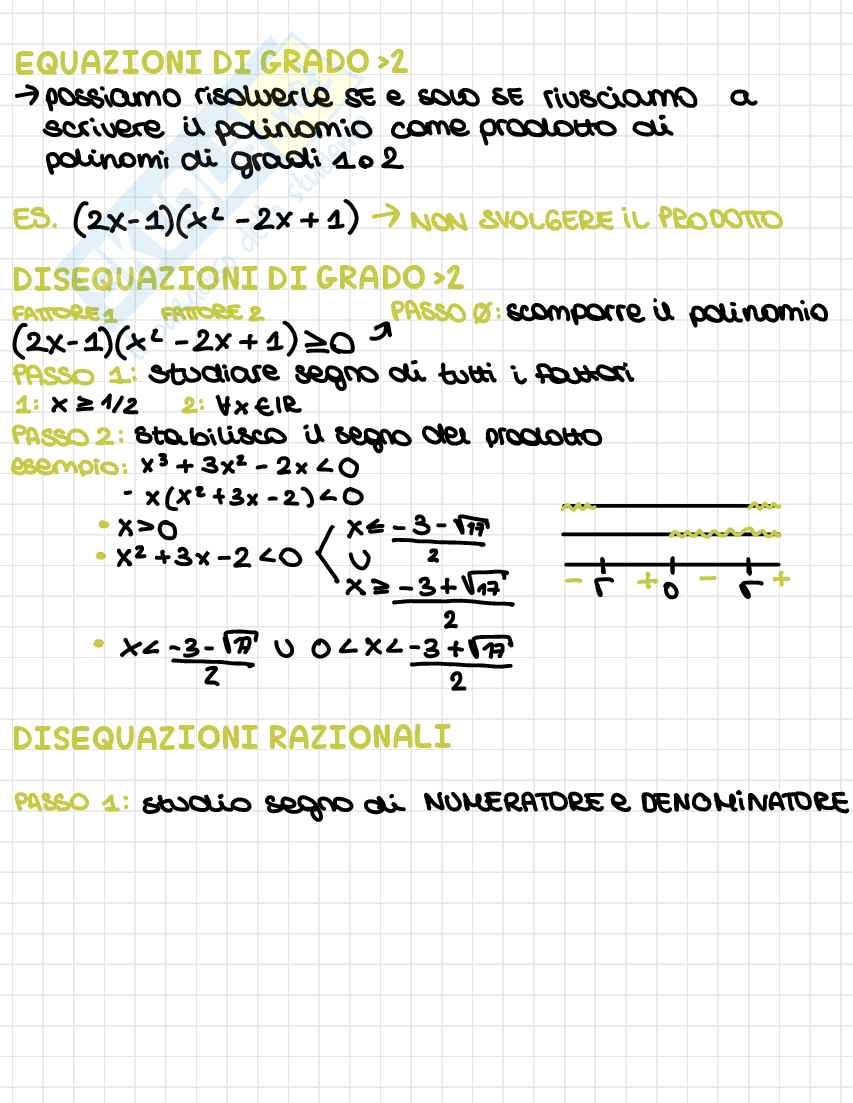 EQUAZIONI DI GRADO >2
→ possiamo risolverle SE e solo SE riusciamo a
scrivere il polinomio come prodotto di
polinomi di gradi 1 o 2
ES. (2x-1)(x² - 2x + 1) → NON SVOLGERE IL PRODOTTO
DISEQUAZIONI DI GRADO >2
FATTORE 1 FATTORE 2 PASSO 0: scomporre il polinomio
(2x-1)(x² - 2x + 1) ≥ 0 ↗
PASSO 1: studiare segno di tutti i fattori
1: x ≥ 1/2 2: ∀x ∈ IR
PASSO 2: stabilisco il segno del prodotto
esempio: x³ + 3x² - 2x < 0
- x(x² + 3x - 2) < 0
• x > 0
• x² + 3x - 2 < 0 < x ≤ (-3 - √17)/2
∪
x ≥ (-3 + √17)/2
- Γ + 0 - Γ +
• x < (-3 - √17)/2 ∪ 0 < x < (-3 + √17)/2
DISEQUAZIONI RAZIONALI
PASSO 1: studio segno di NUMERATORE e DENOMINATORE